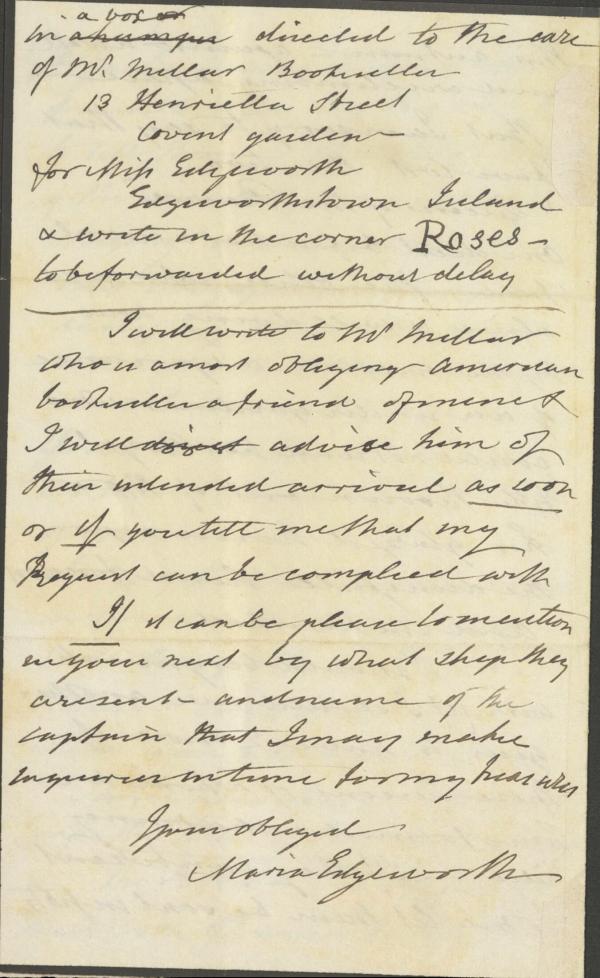 a box or
in a hamper directed to the care
of Mr. Mellar Bookseller
13 Henrietta Street
Covent garden
for Miss Edgeworth
Edgeworthstown Ireland
& write in the corner Roses –
to be forwarded without delay
I will write to Mr Mellar
who is a most obliging American
bookseller a friend of mine &
I will direct advise him of
their intended arrival as soon
or if you tell me that my
Request can be complied with
If it can be please to mention
in your next by what ship they
are sent – and name of the
captain that I may make
inquiries in time for my treasures
Your obliged
Maria Edgeworth